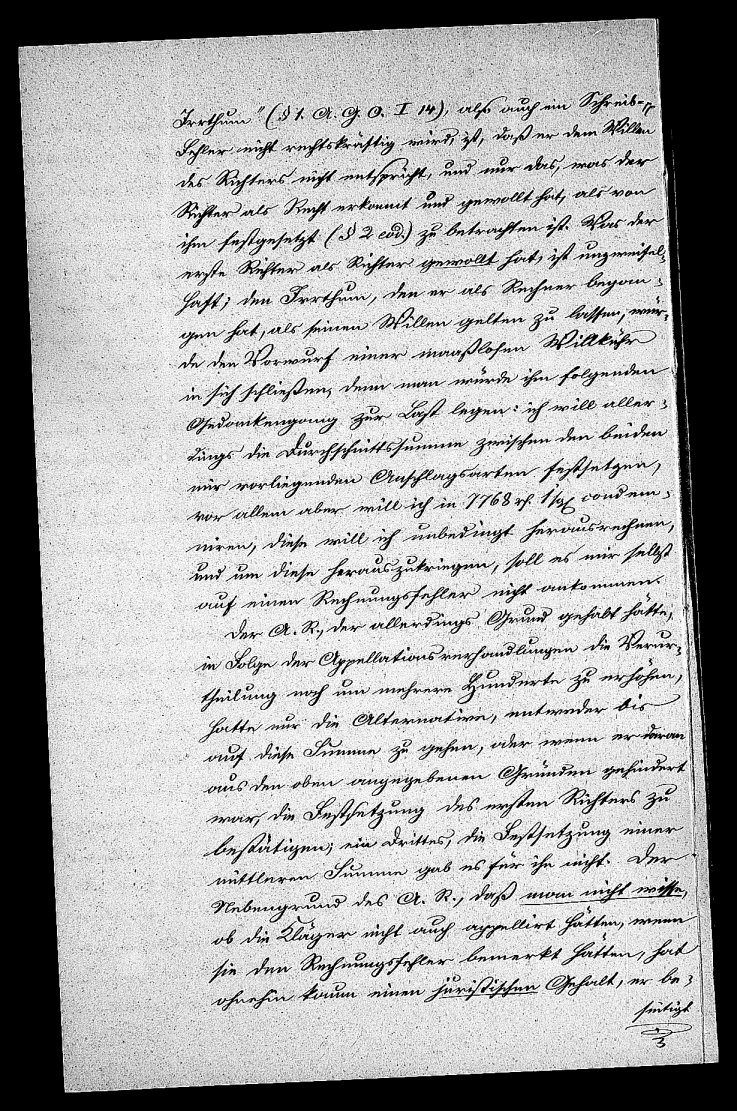 Irrthum" (§ 1. A. G. O. I 14), also auch ein Schreib-
Fehler nicht rechtskräftig wird, ist, daß er dem Willen
des Richters nicht entspricht, und nur das, was der
Richter als Recht erkannt und gewollt hat, als von
ihm festgesetzt (§ 2 eod.) zu betrachten ist. Was der
erste Richter als Richter gewollt hat, ist unzweifel-
haft; den Irrthum, den er als Rechner began-
gen hat, als seinen Willen gelten zu lassen, wür-
de den Vorwurf einer maaßlosen Willkühr
in sich schließen, denn man würde ihm folgenden
Gedankengang zur Last legen: ich will aller-
dings die Durchschnittssumme zwischen den beiden
mir vorliegenden Anschlagsarten festsetzen,
vor allem aber will ich in 7768 condem-
niren, diese will ich unbedingt herausrechnen,
und um diese herauszukriegen, soll es mir selbst
auf einen Rechnungsfehler nicht ankommen.
Der A. R., der allerdings Grund gehabt hätte,
in Folge der Appellationsverhandlungen die Verur-
theilung noch um mehrere Hunderte zu erhöhen,
hatte nur die Alternative, entweder bis
auf diese Summe zu gehen, oder wenn er daran
aus den oben angegebenen Gründen gehindert
war, die Festsetzung des ersten Richters zu
bestätigen; ein Drittes, die Festsetzung einer
mittleren Summe gab es für ihn nicht. Der
Nebengrund des A. R., daß man nicht wisse,
ob die Kläger nicht auch appellirt hätten, wenn
sie den Rechnungsfehler bemerkt hätten, hat
ohnehin kaum einen juristischen Gehalt, er be-
seitigt